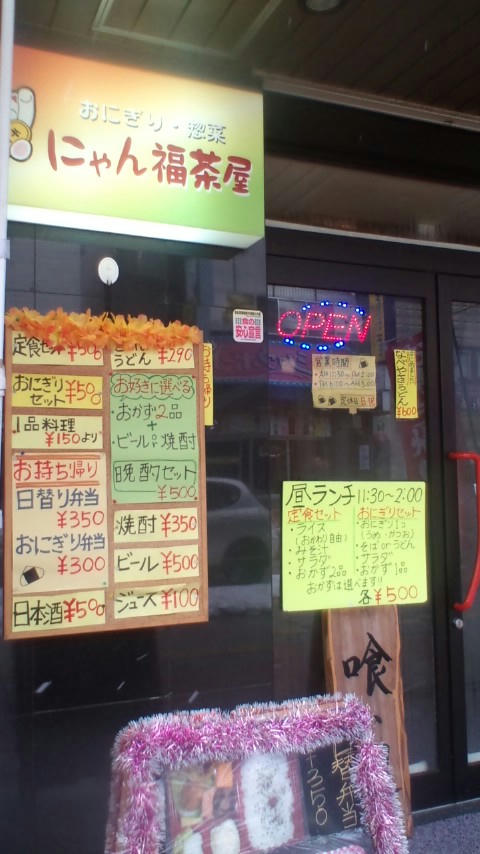 おにぎり・惣菜
にゃん福茶屋
OPEN
安心宣言
営業時間
定休日 日・祝
なべやきうどん
¥600
定食セット ¥500
うどん ¥290
おにぎり
セット ¥500
1品料理
¥150より
お持ち帰り
日替り弁当
¥350
おにぎり弁当
¥300
日本酒 ¥500
お好きに選べる
おかず2品
+
ビールor焼酎
晩酌セット
¥500
焼酎 ¥350
ビール ¥500
ジュース ¥100
昼ランチ 11:30~2:00
定食セット
・ライス
(おかわり自由)
・みそ汁
・サラダ
・おかず2品
おにぎりセット
・おにぎり1コ
(うめ・かつお)
・そばorうどん
・サラダ
・おかず1品
おかずは選べます!!
各¥500
喰
日替弁当
¥350